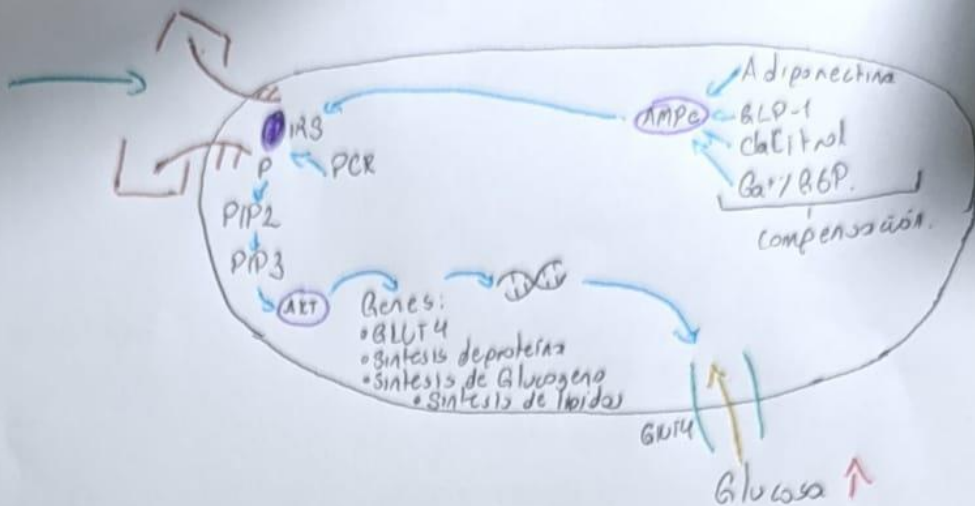 IRS
P
PCR
PIP2
PIP3
AKT
Genes:
• GLUT4
• Sintesis de proteína
• Sintesis de Glucogeno
• Sintesis de lipidos
AMPc
Adiponectina
GLP-1
Compensación.
GLUT4
Glucosa ↑